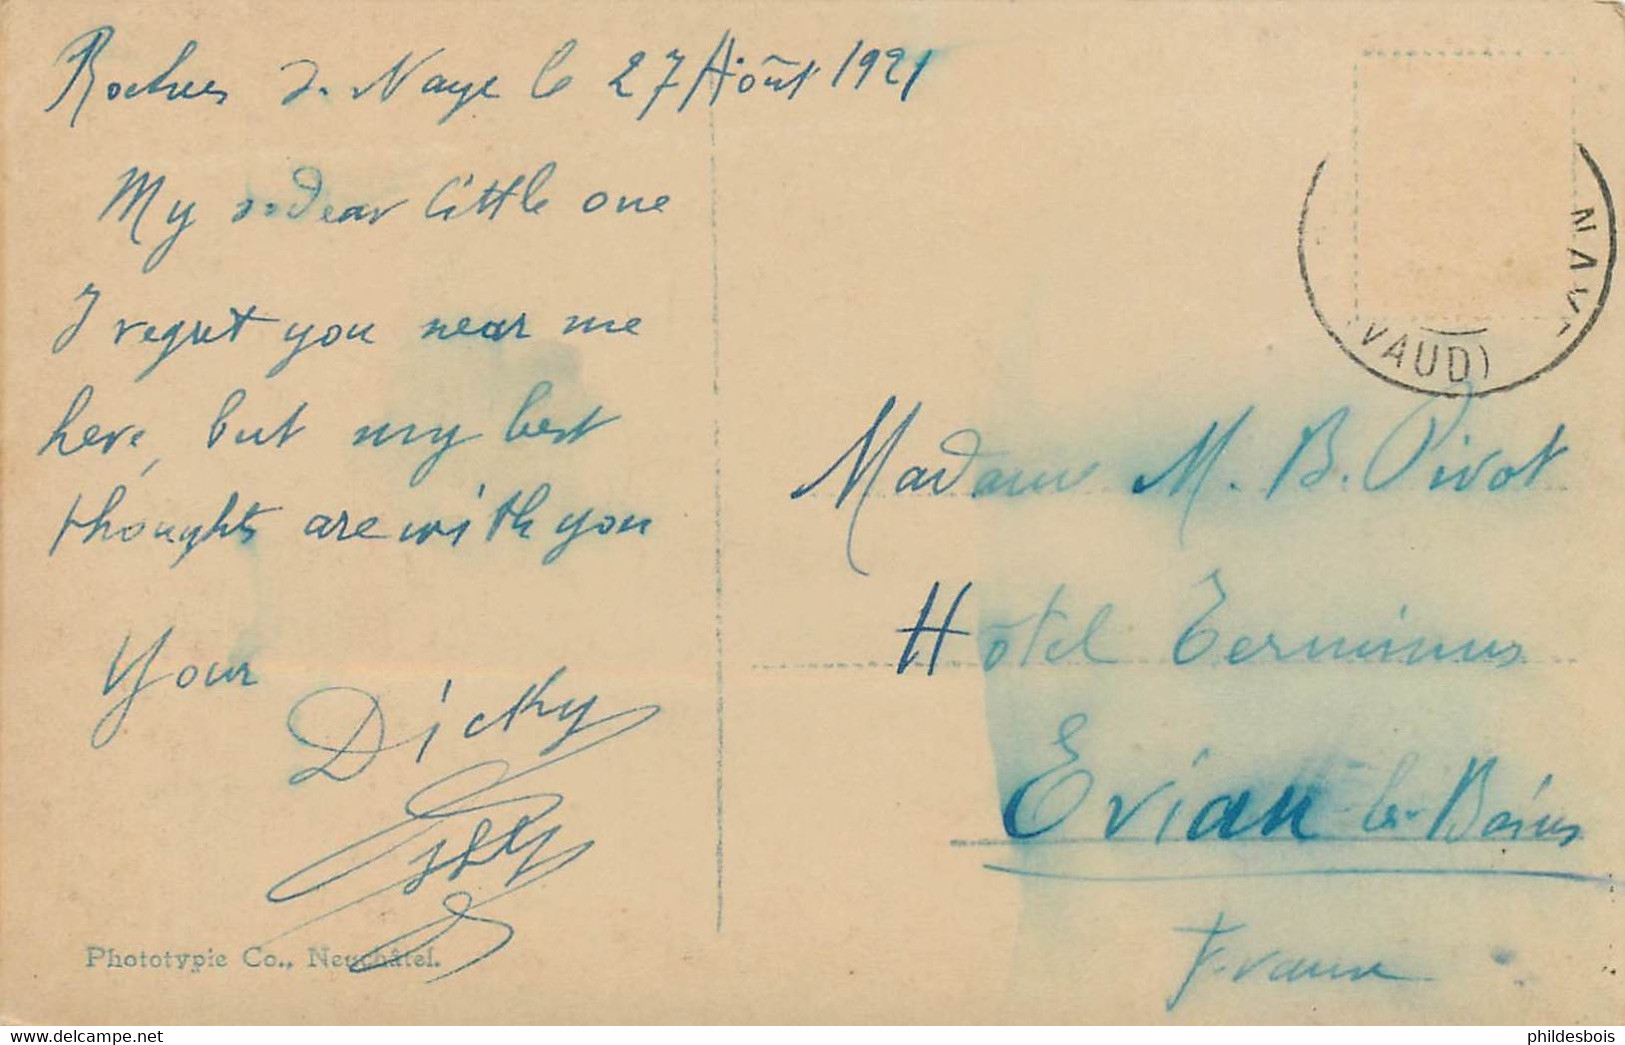 Rochers de Naye le 27 Août 1921
My dear little one
I regret you near me
here, but my best
thoughts are with you
Your
Dicky
Phototypie Co., Neuchâtel.
NAYE
(VAUD)
Madame M. B. Pivot
Hôtel Terminus
Evian-les-Bains
France
phildesbois